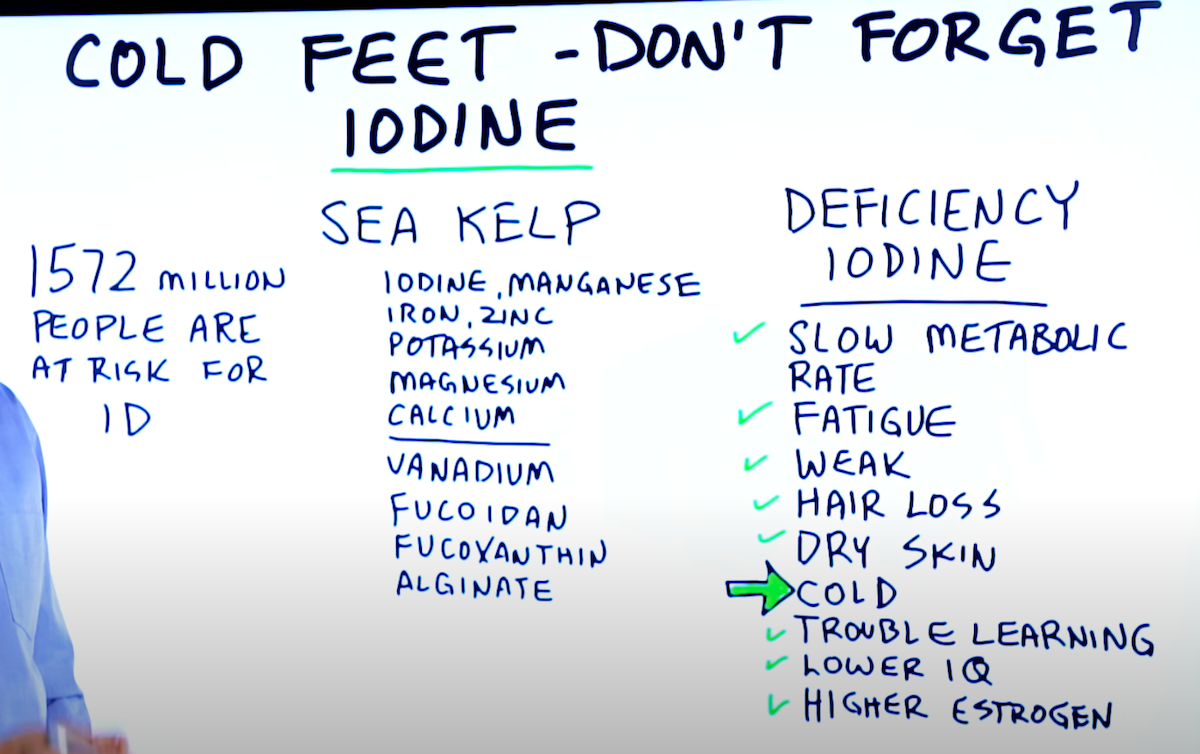 COLD FEET - DON'T FORGET
IODINE
1572 MILLION
PEOPLE ARE
AT RISK FOR
ID
SEA KELP
IODINE, MANGANESE
IRON, ZINC
POTASSIUM
MAGNESIUM
CALCIUM
VANADIUM
FUCOIDAN
FUCOXANTHIN
ALGINATE
DEFICIENCY
IODINE
✓ SLOW METABOLIC
RATE
✓ FATIGUE
✓ WEAK
✓ HAIR LOSS
✓ DRY SKIN
COLD
✓ TROUBLE LEARNING
✓ LOWER IQ
✓ HIGHER ESTROGEN